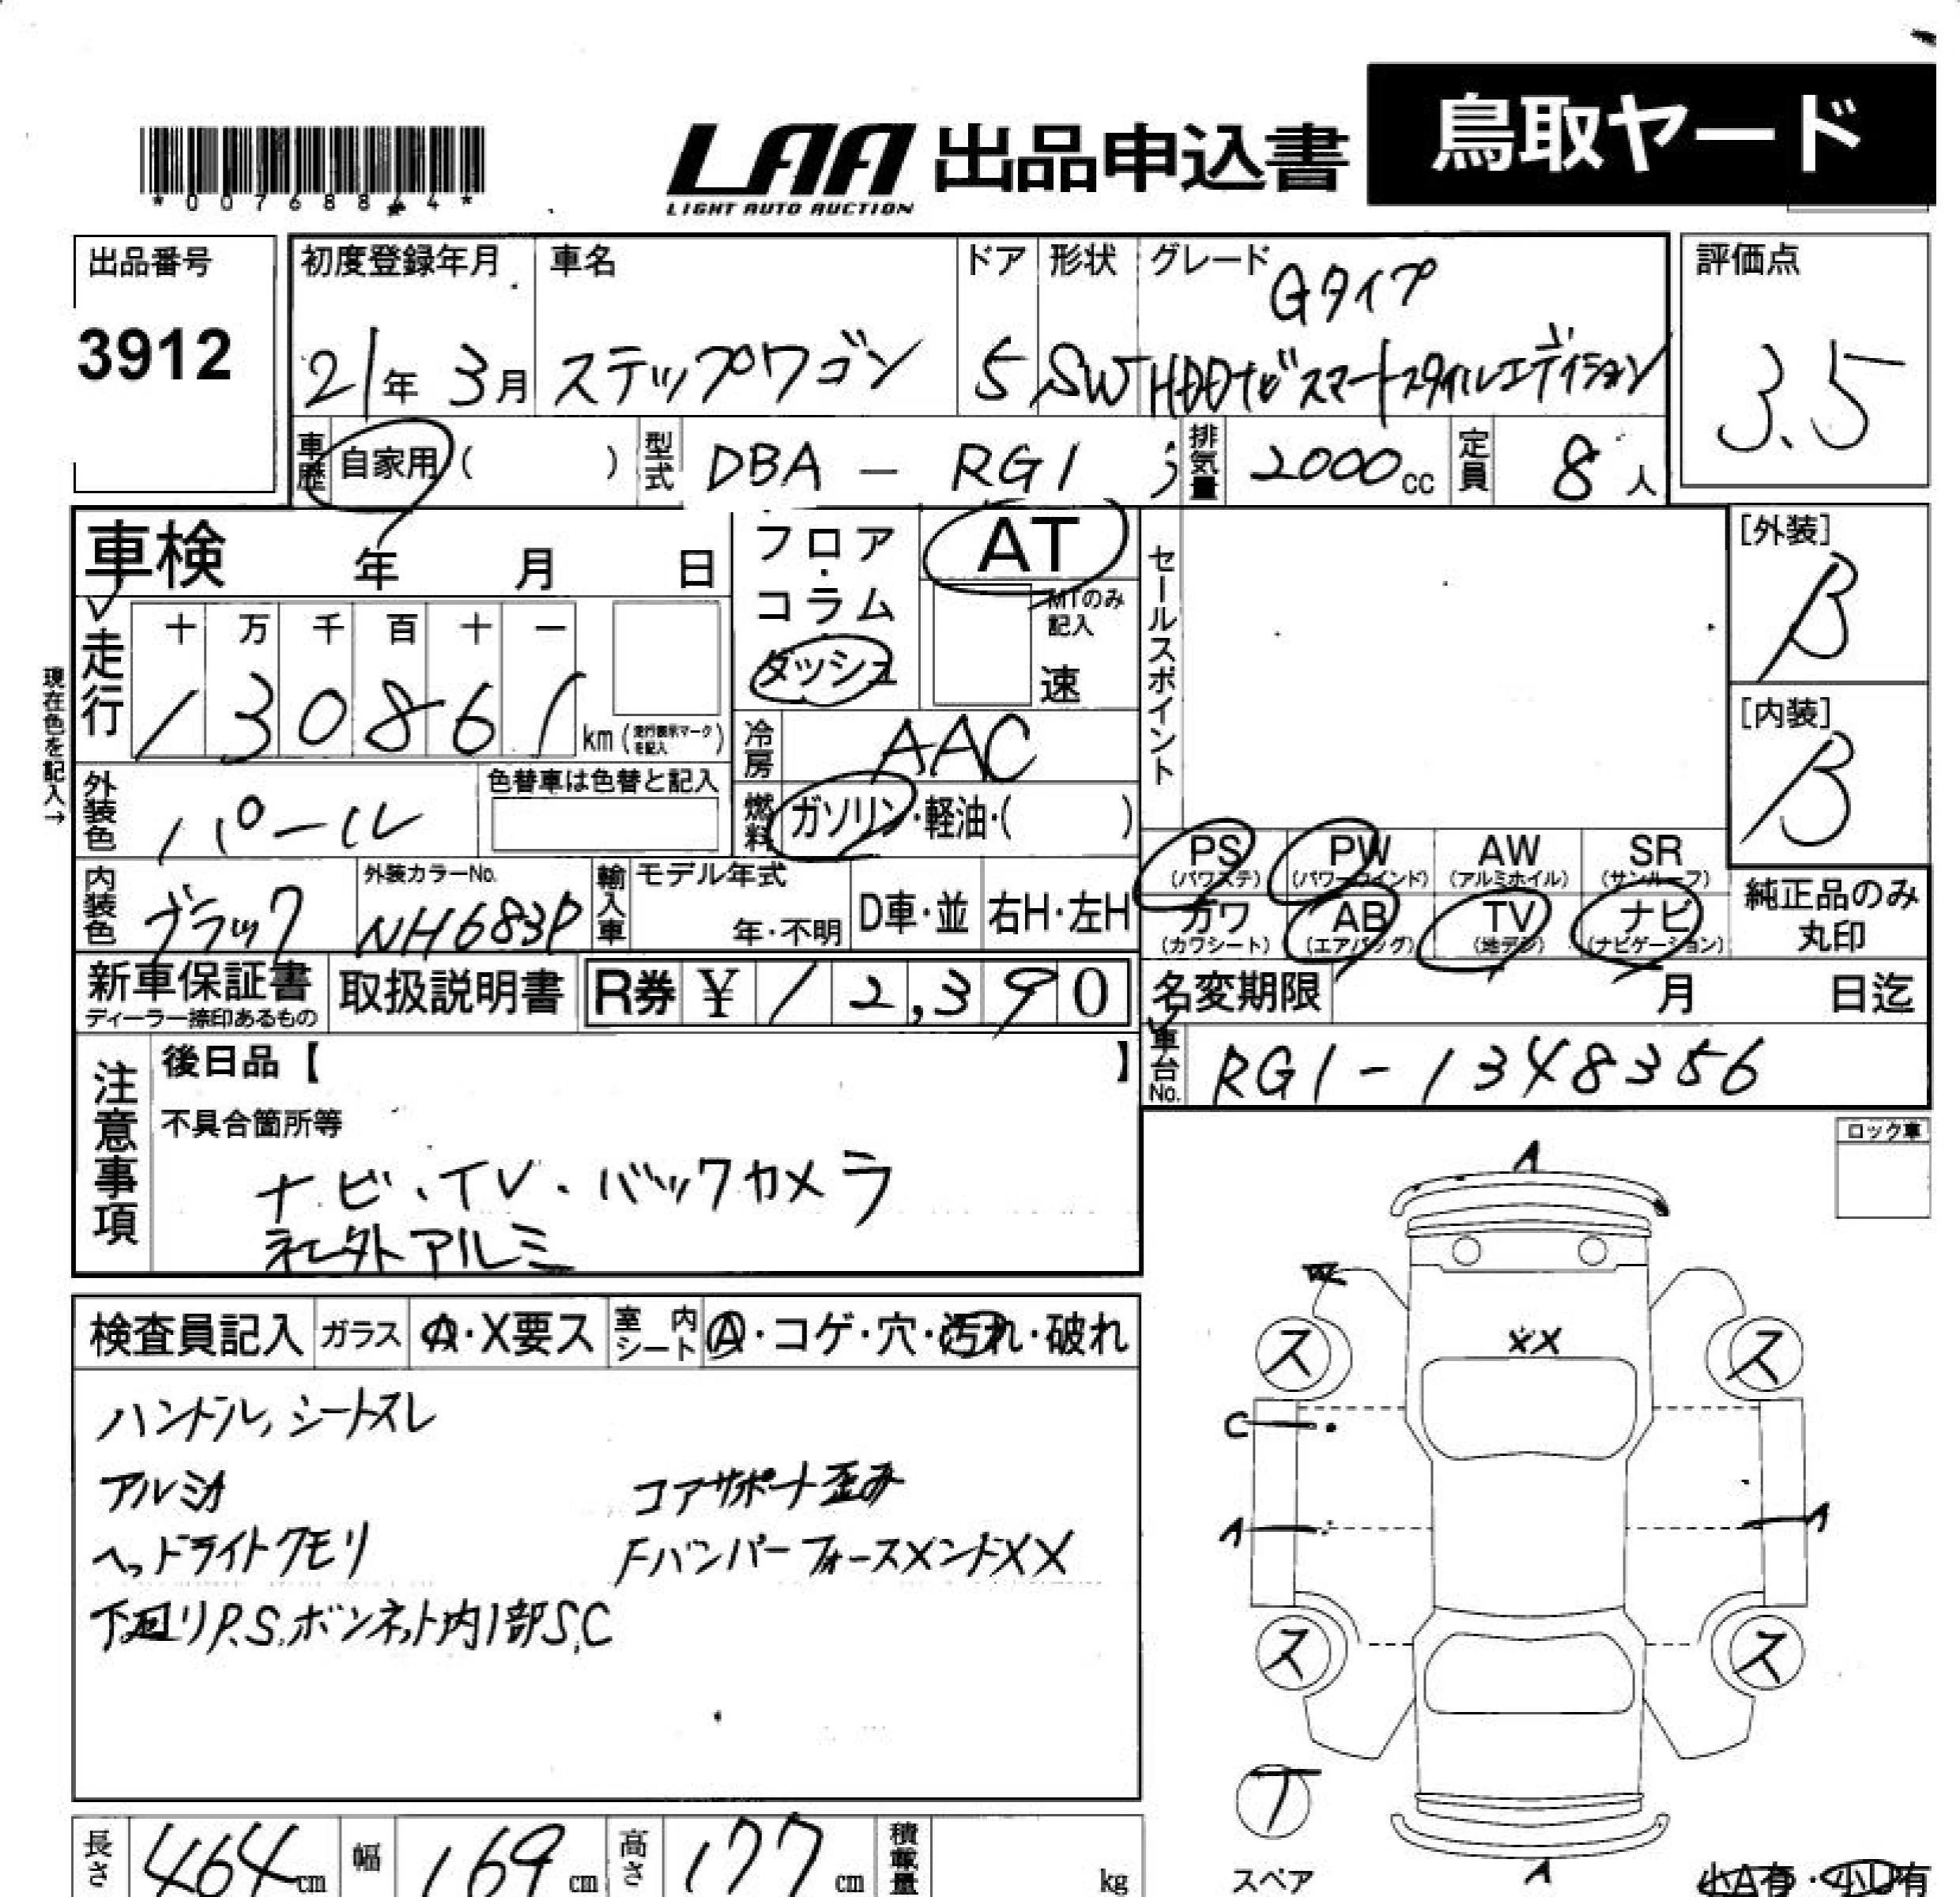 鳥取ヤード
LAA 出品申込書
LIGHT AUTO AUCTION
*00768844*
出品番号
3912
初度登録年月
21年 3月
車名
ステップワゴン
ドア
5
形状
SW
グレード
Gタイプ
HDDナビスマートスタイルエディション
評価点
3.5
車歴
自家用( )
型式
DBA - RG1
排気量
2000cc
定員
8人
車検 年 月 日
フロア・コラム
ダッシュ
AT
MTのみ記入
速
セールスポイント
[外装]
B
[内装]
B
現在色を記入→
走行
十 万 千 百 十 一
1 3 0 8 6 1 km (走行表示マークを記入)
冷房
AAC
外装色
パール
色替車は色替と記入
燃料
ガソリン・軽油・( )
PS (パワステ)
PW (パワーウインド)
AW (アルミホイル)
SR (サンルーフ)
内装色
ブラック
外装カラーNo.
NH683P
輸入車
モデル年式
年・不明
D車・並
右H・左H
カワ (カワシート)
AB (エアバッグ)
TV (地デジ)
ナビ (ナビゲーション)
純正品のみ丸印
新車保証書
ディーラー捺印あるもの
取扱説明書
R券 ¥ 12,390
名変期限 月 日迄
車台No.
RG1-1348356
注意事項
後日品【 】
不具合箇所等
ナビ・TV・バックカメラ
社外アルミ
ロック車
検査員記入
ガラス A・X要ス
室内シート A・コゲ・穴・汚れ・破れ
ハンドル,シートスレ
アルミキズ
コアサポート歪み
ヘッドライトクモリ
FバンパーフォースメントXX
下廻りP.S.ボンネット内1部S,C
A
XX
ス ス
C
A A
ス ス
T
スペア
A
小A有・小U有
長さ 464cm
幅 169cm
高さ 177cm
積載量 kg